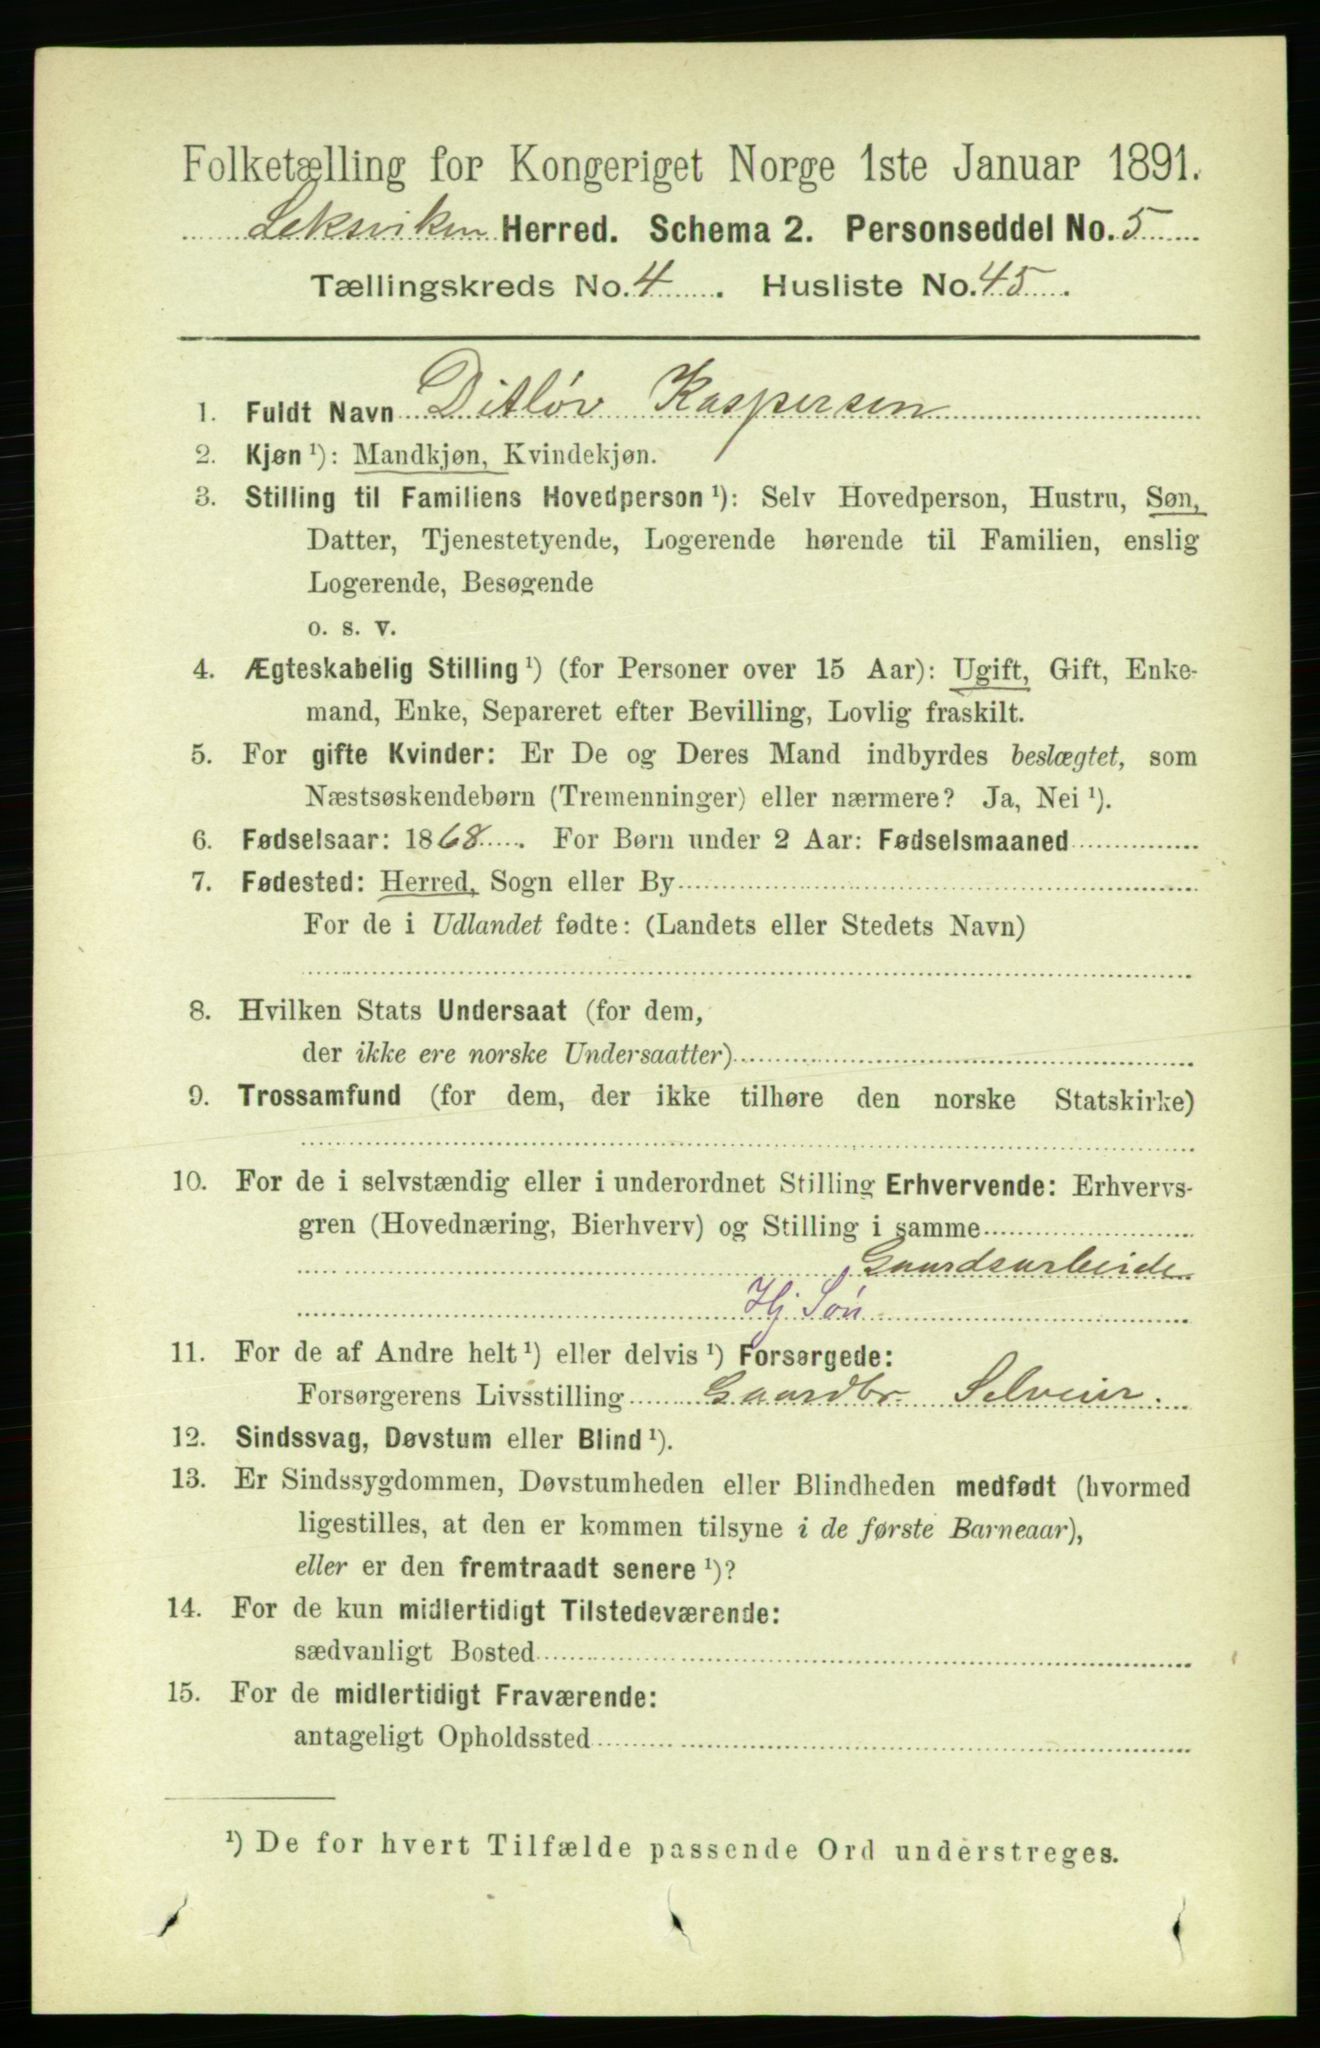 Folketælling for Kongeriget Norge 1ste Januar 1891.
Leksviken Herred. Schema 2. Personseddel No. 5
Tællingskreds No. 4. Husliste No. 45.
1. Fuldt Navn Ditløv Kaspersen
2. Kjøn ¹): Mandkjøn, Kvindekjøn.
3. Stilling til Familiens Hovedperson ¹): Selv Hovedperson, Hustru, Søn,
Datter, Tjenestetyende, Logerende hørende til Familien, enslig
Logerende, Besøgende
o. s. v.
4. Ægteskabelig Stilling ¹) (for Personer over 15 Aar): Ugift, Gift, Enke-
mand, Enke, Separeret efter Bevilling, Lovlig fraskilt.
5. For gifte Kvinder: Er De og Deres Mand indbyrdes beslægtet, som
Næstsøskendebørn (Tremenninger) eller nærmere? Ja, Nei ¹).
6. Fødselsaar: 1868. For Børn under 2 Aar: Fødselsmaaned
7. Fødested: Herred, Sogn eller By
For de i Udlandet fødte: (Landets eller Stedets Navn)
8. Hvilken Stats Undersaat (for dem,
der ikke ere norske Undersaatter)
9. Trossamfund (for dem, der ikke tilhøre den norske Statskirke)
10. For de i selvstændig eller i underordnet Stilling Erhvervende: Erhvervs-
gren (Hovednæring, Bierhverv) og Stilling i samme
Gaardsarbeide
Hj Søn
11. For de af Andre helt ¹) eller delvis ¹) Forsørgede:
Forsørgerens Livsstilling Gaardbr. Selveier.
12. Sindssvag, Døvstum eller Blind ¹).
13. Er Sindssygdommen, Døvstumheden eller Blindheden medfødt (hvormed
ligestilles, at den er kommen tilsyne i de første Barneaar),
eller er den fremtraadt senere ¹)?
14. For de kun midlertidigt Tilstedeværende:
sædvanligt Bosted
15. For de midlertidigt Fraværende:
antageligt Opholdssted
¹) De for hvert Tilfælde passende Ord understreges.